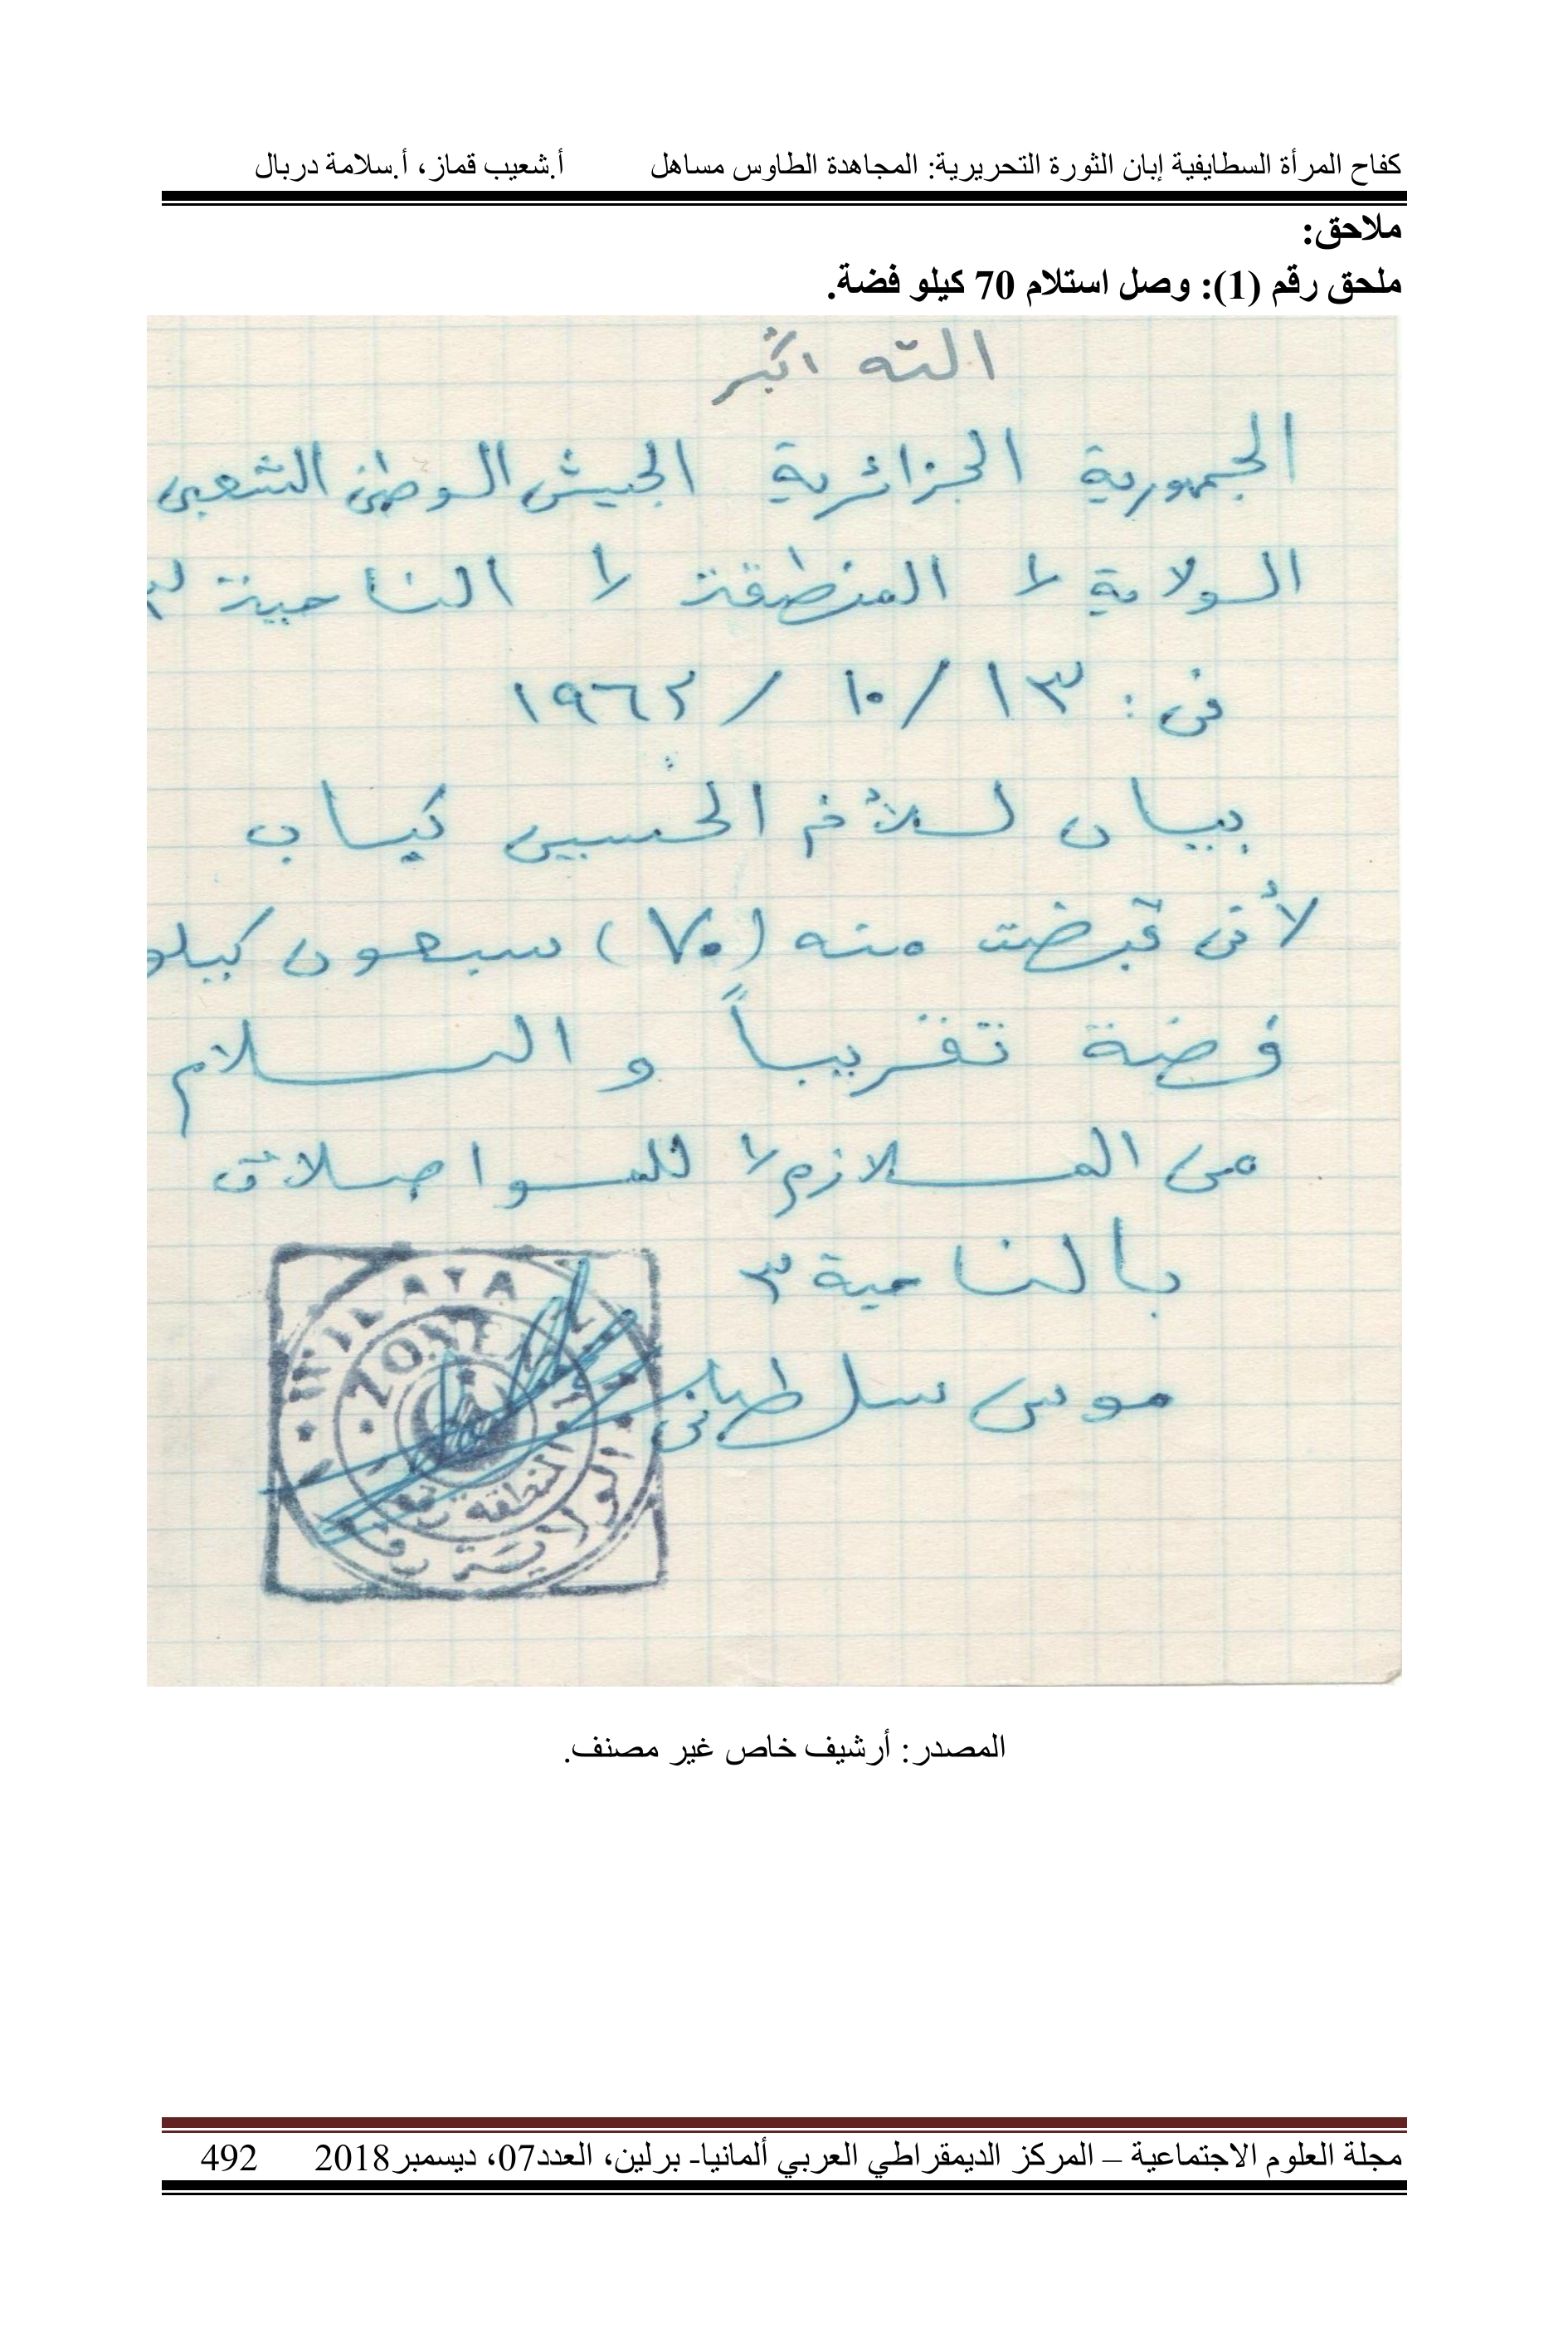 كفاح المرأة السطايفية إبان الثورة التحريرية: المجاهدة الطاوس مساهل أ.شعيب قماز، أ.سلامة دربال
ملاحق:
ملحق رقم (1): وصل استلام 70 كيلو فضة.
الله اكبر
الجمهورية الجزائرية الجيش الوطني الشعبي
الولاية ١ المنطقة ١ الناحية ٣
في: ١٣/ ١٠ / ١٩٦٢
بيان للأخ الحسين كياب
لأني قبضت منه (٧٠) سبعون كيلو
فضة تقريباً والسلام
من الملازم ١ للمواصلات
بالناحية ٣
موسى سلطاني
WILAYA
ZONE
المنطقة
الولاية رقم
المصدر: أرشيف خاص غير مصنف.
مجلة العلوم الاجتماعية – المركز الديمقراطي العربي ألمانيا- برلين، العدد07، ديسمبر2018 492